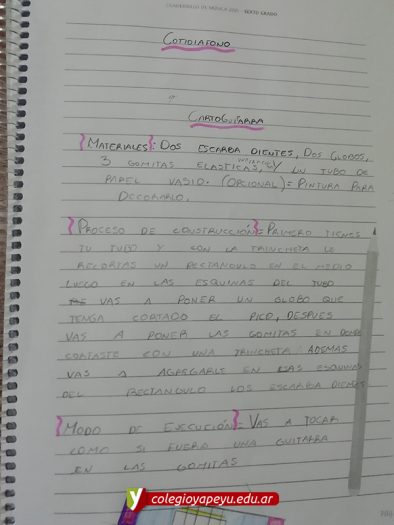 CUADERNILLO DE MÚSICA 2021 - SEXTO GRADO
COTIDIAFONO
CARTOGUITARRA
{MATERIALES}: DOS ESCARBA DIENTES, DOS GLOBOS,
3 GOMITAS ELASTICAS, Y UN TUBO DE
PAPEL VASIO. (OPCIONAL)= PINTURA PARA
DECORARLO.
{PROCESO DE CONSTRUCCIÓN}= PRIMERO TIENES
TU TUBO Y CON LA TRINCHETA LE
RECORTAS UN RECTANGULO EN EL MEDIO
LUEGO EN LAS ESQUINAS DEL TUBO
VAS A PONER UN GLOBO QUE
TENGA CORTADO EL PICO, DESPUES
VAS A PONER LAS GOMITAS EN DONDE
CORTASTE CON UNA TRINCHETA ADEMAS
VAS A AGREGARLE EN LAS ESQUINAS
DEL RECTANGULO LOS ESCARBA DIENTES
{MODO DE EJECUCIÓN}= VAS A TOCAR
COMO SI FUERA UNA GUITARRA
EN LAS GOMITAS
colegioyapeyu.edu.ar